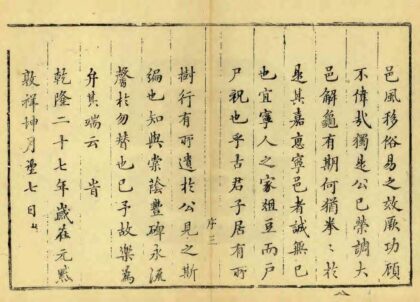 邑風移俗易之效厥功顧
不偉哉獨是公已榮調大
邑解龜有期何猶拳〻於
是其嘉惠寧邑者誠無已
也宜寧人之家俎豆而戶
尸祝也乎古君子居有所
序三
樹行有所遺於公見之斯
編也知與棠蔭豐碑永流
馨於勿替也已予故樂為
弁其端云 旹
乾隆二十七年歲在元黓
敦牂坤月望七日